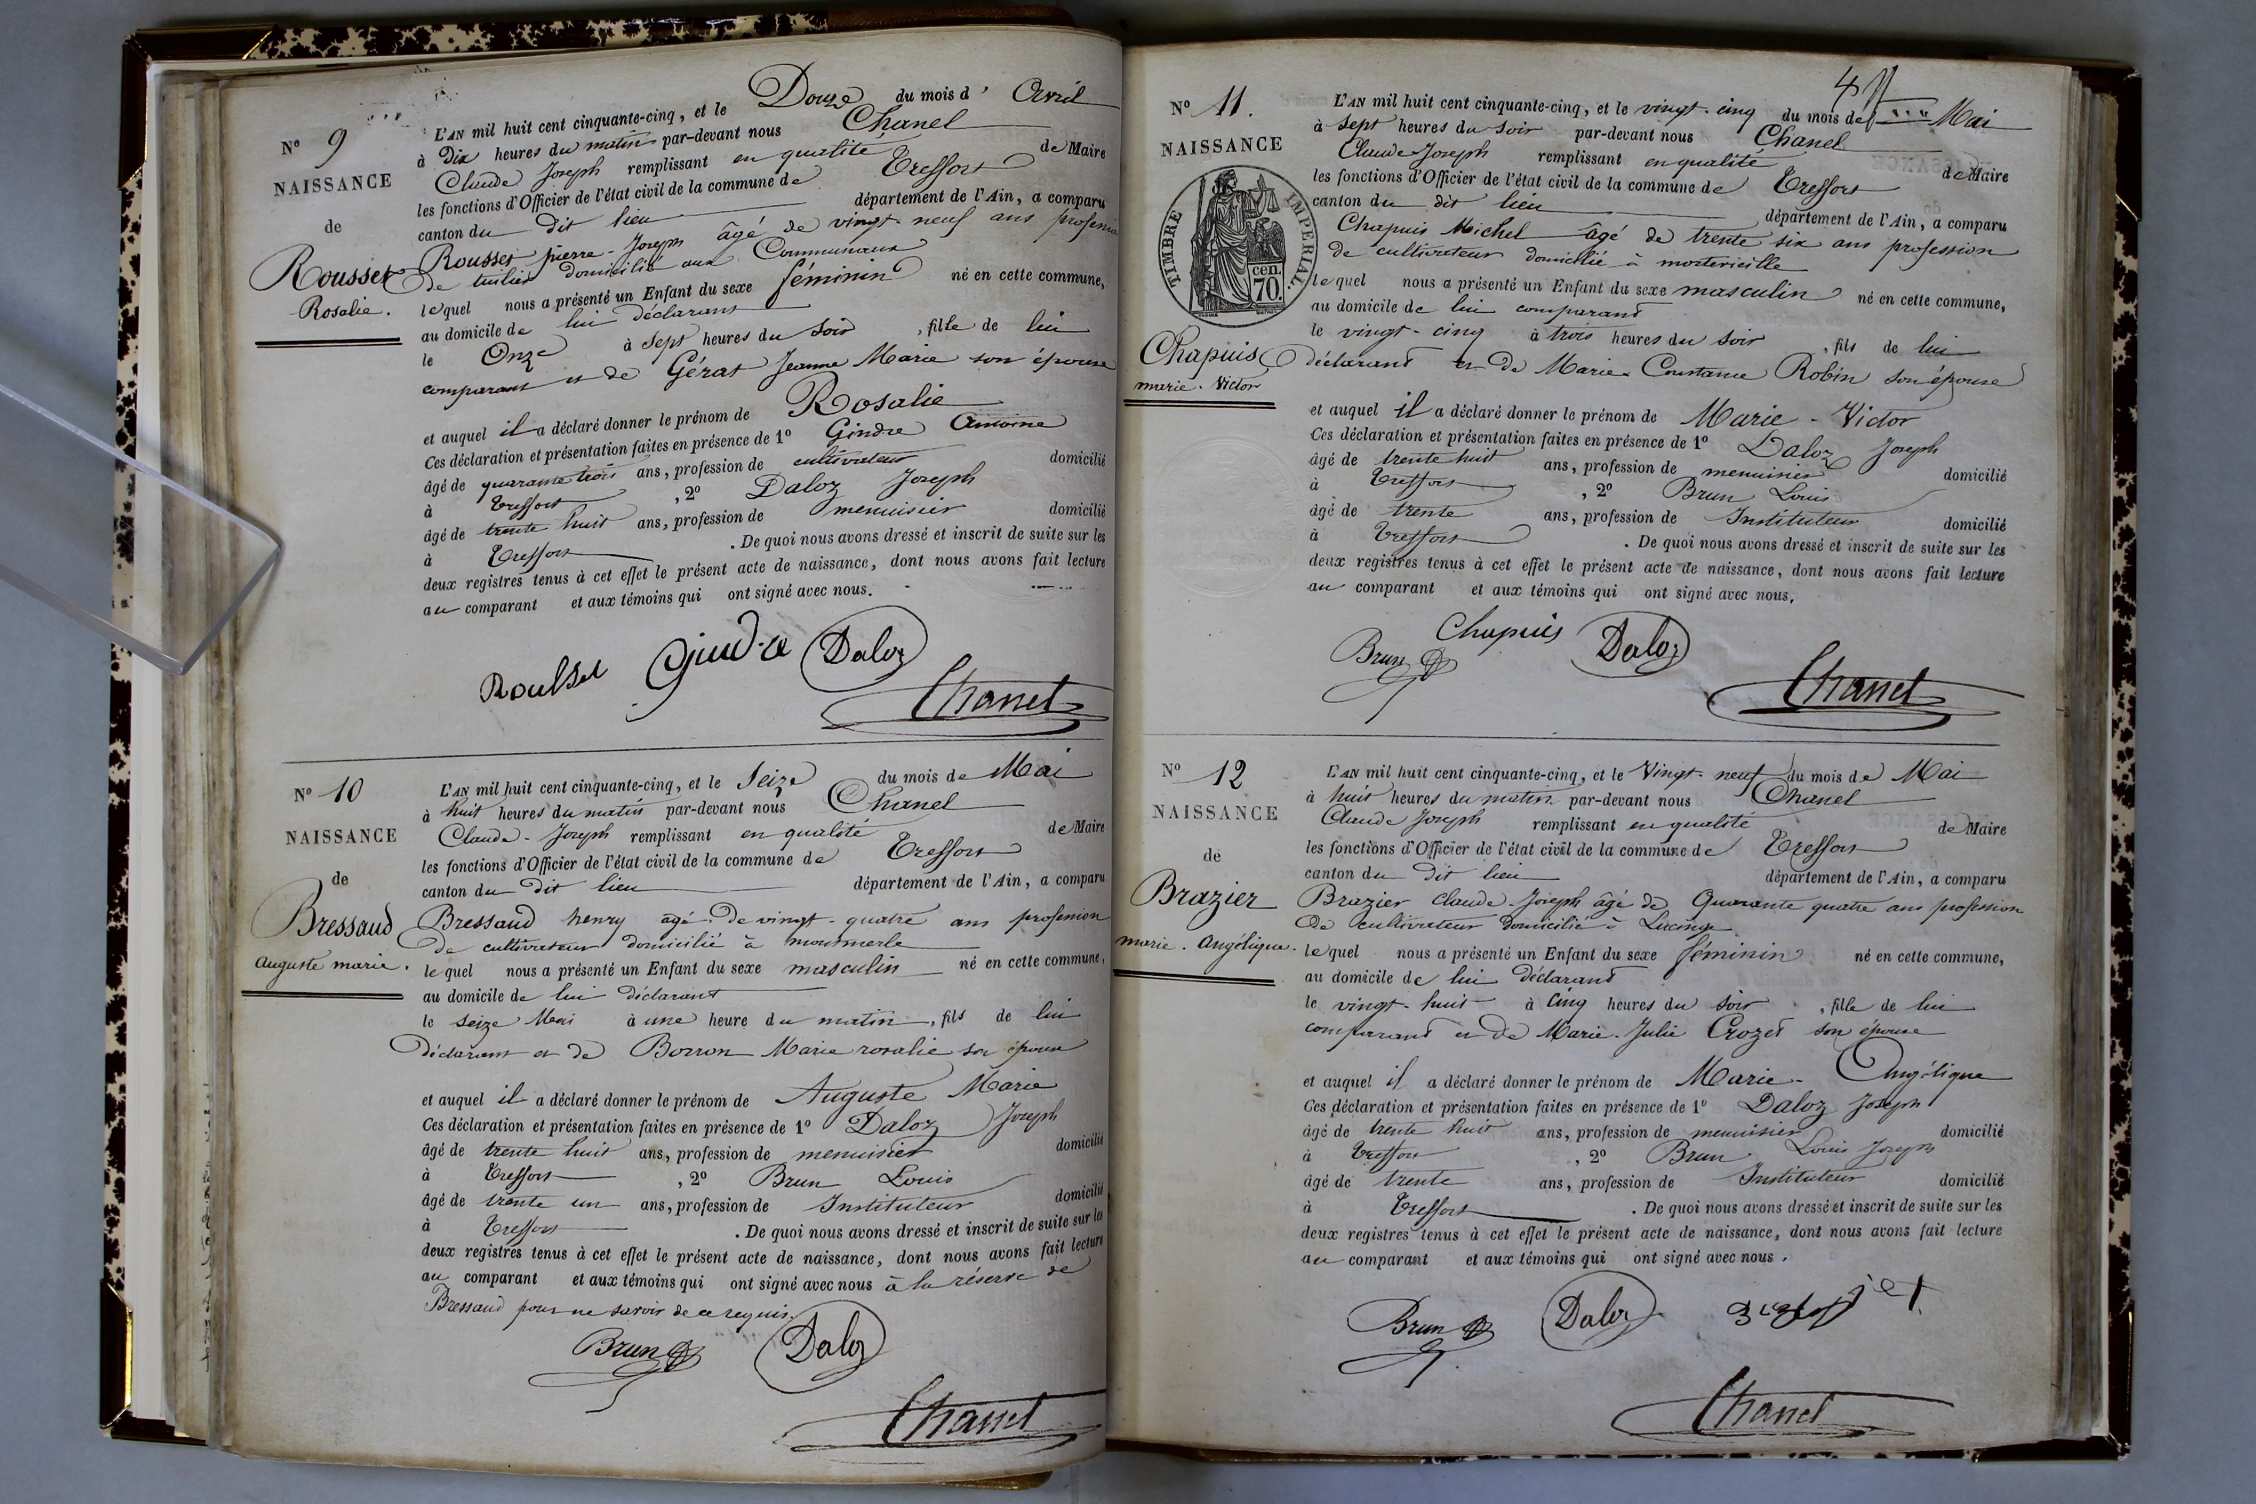 N° 9
NAISSANCE
de
Rousset
Rosalie.
L'AN mil huit cent cinquante-cinq, et le Douze du mois d' Avril
à Dix heures du matin par-devant nous Chanel
Claude Joseph remplissant en qualité de Maire
les fonctions d'Officier de l'état civil de la commune de Treffort
canton du dit lieu département de l'Ain, a comparu
Rousset pierre-Joseph âgé de vingt-neuf ans profession
de tuilier domicilié aux Communaux
lequel nous a présenté un Enfant du sexe féminin né en cette commune,
au domicile de lui déclarant
le Onze à sept heures du soir, fille de lui
comparant et de Gérat Jeanne Marie son épouse
et auquel il a déclaré donner le prénom de Rosalie
Ces déclaration et présentation faites en présence de 1° Gindre Antoine
âgé de quarante trois ans, profession de cultivateur domicilié
à Treffort, 2° Daloz Joseph
âgé de trente huit ans, profession de menuisier domicilié
à Treffort. De quoi nous avons dressé et inscrit de suite sur les
deux registres tenus à cet effet le présent acte de naissance, dont nous avons fait lecture
au comparant et aux témoins qui ont signé avec nous.
Rousset Gindre Daloz
Chanel
N° 10
NAISSANCE
de
Bressaud
auguste marie.
L'AN mil huit cent cinquante-cinq, et le Seize du mois de Mai
à huit heures du matin par-devant nous Chanel
Claude-Joseph remplissant en qualité de Maire
les fonctions d'Officier de l'état civil de la commune de Treffort
canton du dit lieu département de l'Ain, a comparu
Bressaud henry âgé de vingt-quatre ans profession
de cultivateur domicilié à monmerle
lequel nous a présenté un Enfant du sexe masculin né en cette commune,
au domicile de lui déclarant
le seize Mai à une heure du matin, fils de lui
déclarant et de Borron Marie rosalie son épouse
et auquel il a déclaré donner le prénom de Auguste Marie
Ces déclaration et présentation faites en présence de 1° Daloz Joseph
âgé de trente huit ans, profession de menuisier domicilié
à Treffort, 2° Brun Louis
âgé de trente un ans, profession de Instituteur domicilié
à Treffort. De quoi nous avons dressé et inscrit de suite sur les
deux registres tenus à cet effet le présent acte de naissance, dont nous avons fait lecture
au comparant et aux témoins qui ont signé avec nous à la réserve de
Bressaud pour ne savoir de ce requis.
Brun Daloz
Chanel
4
N° 11.
NAISSANCE
TIMBRE IMPERIAL.
cen.
70.
Chapuis
marie-Victor
L'AN mil huit cent cinquante-cinq, et le vingt-cinq du mois de Mai
à sept heures du soir par-devant nous Chanel
Claude-Joseph remplissant en qualité de Maire
les fonctions d'Officier de l'état civil de la commune de Treffort
canton du dit lieu département de l'Ain, a comparu
Chapuis Michel âgé de trente six ans profession
de cultivateur domicilié à montericelle
lequel nous a présenté un Enfant du sexe masculin né en cette commune,
au domicile de lui comparant
le vingt-cinq à trois heures du soir, fils de lui
déclarant et de Marie Constance Robin son épouse
et auquel il a déclaré donner le prénom de Marie-Victor
Ces déclaration et présentation faites en présence de 1° Daloz Joseph
âgé de trente huit ans, profession de menuisier domicilié
à Treffort, 2° Brun Louis
âgé de trente ans, profession de Instituteur domicilié
à Treffort. De quoi nous avons dressé et inscrit de suite sur les
deux registres tenus à cet effet le présent acte de naissance, dont nous avons fait lecture
au comparant et aux témoins qui ont signé avec nous.
Brun Chapuis Daloz
Chanel
N° 12
NAISSANCE
de
Brazier
marie. Angélique.
L'AN mil huit cent cinquante-cinq, et le Vingt-neuf du mois de Mai
à huit heures du matin par-devant nous Chanel
Claude Joseph remplissant en qualité de Maire
les fonctions d'Officier de l'état civil de la commune de Treffort
canton du dit lieu département de l'Ain, a comparu
Brazier Claude-Joseph âgé de Quarante quatre ans profession
de cultivateur domicilié à Lucinge
lequel nous a présenté un Enfant du sexe féminin né en cette commune,
au domicile de lui déclarant
le vingt-huit à Cinq heures du soir, fille de lui
comparant et de Marie-Julie Crozet son épouse
et auquel il a déclaré donner le prénom de Marie-Angélique
Ces déclaration et présentation faites en présence de 1° Daloz Joseph
âgé de trente huit ans, profession de menuisier domicilié
à Treffort, 2° Brun Louis Joseph
âgé de trente ans, profession de Instituteur domicilié
à Treffort. De quoi nous avons dressé et inscrit de suite sur les
deux registres tenus à cet effet le présent acte de naissance, dont nous avons fait lecture
au comparant et aux témoins qui ont signé avec nous.
Brun Daloz
Chanel